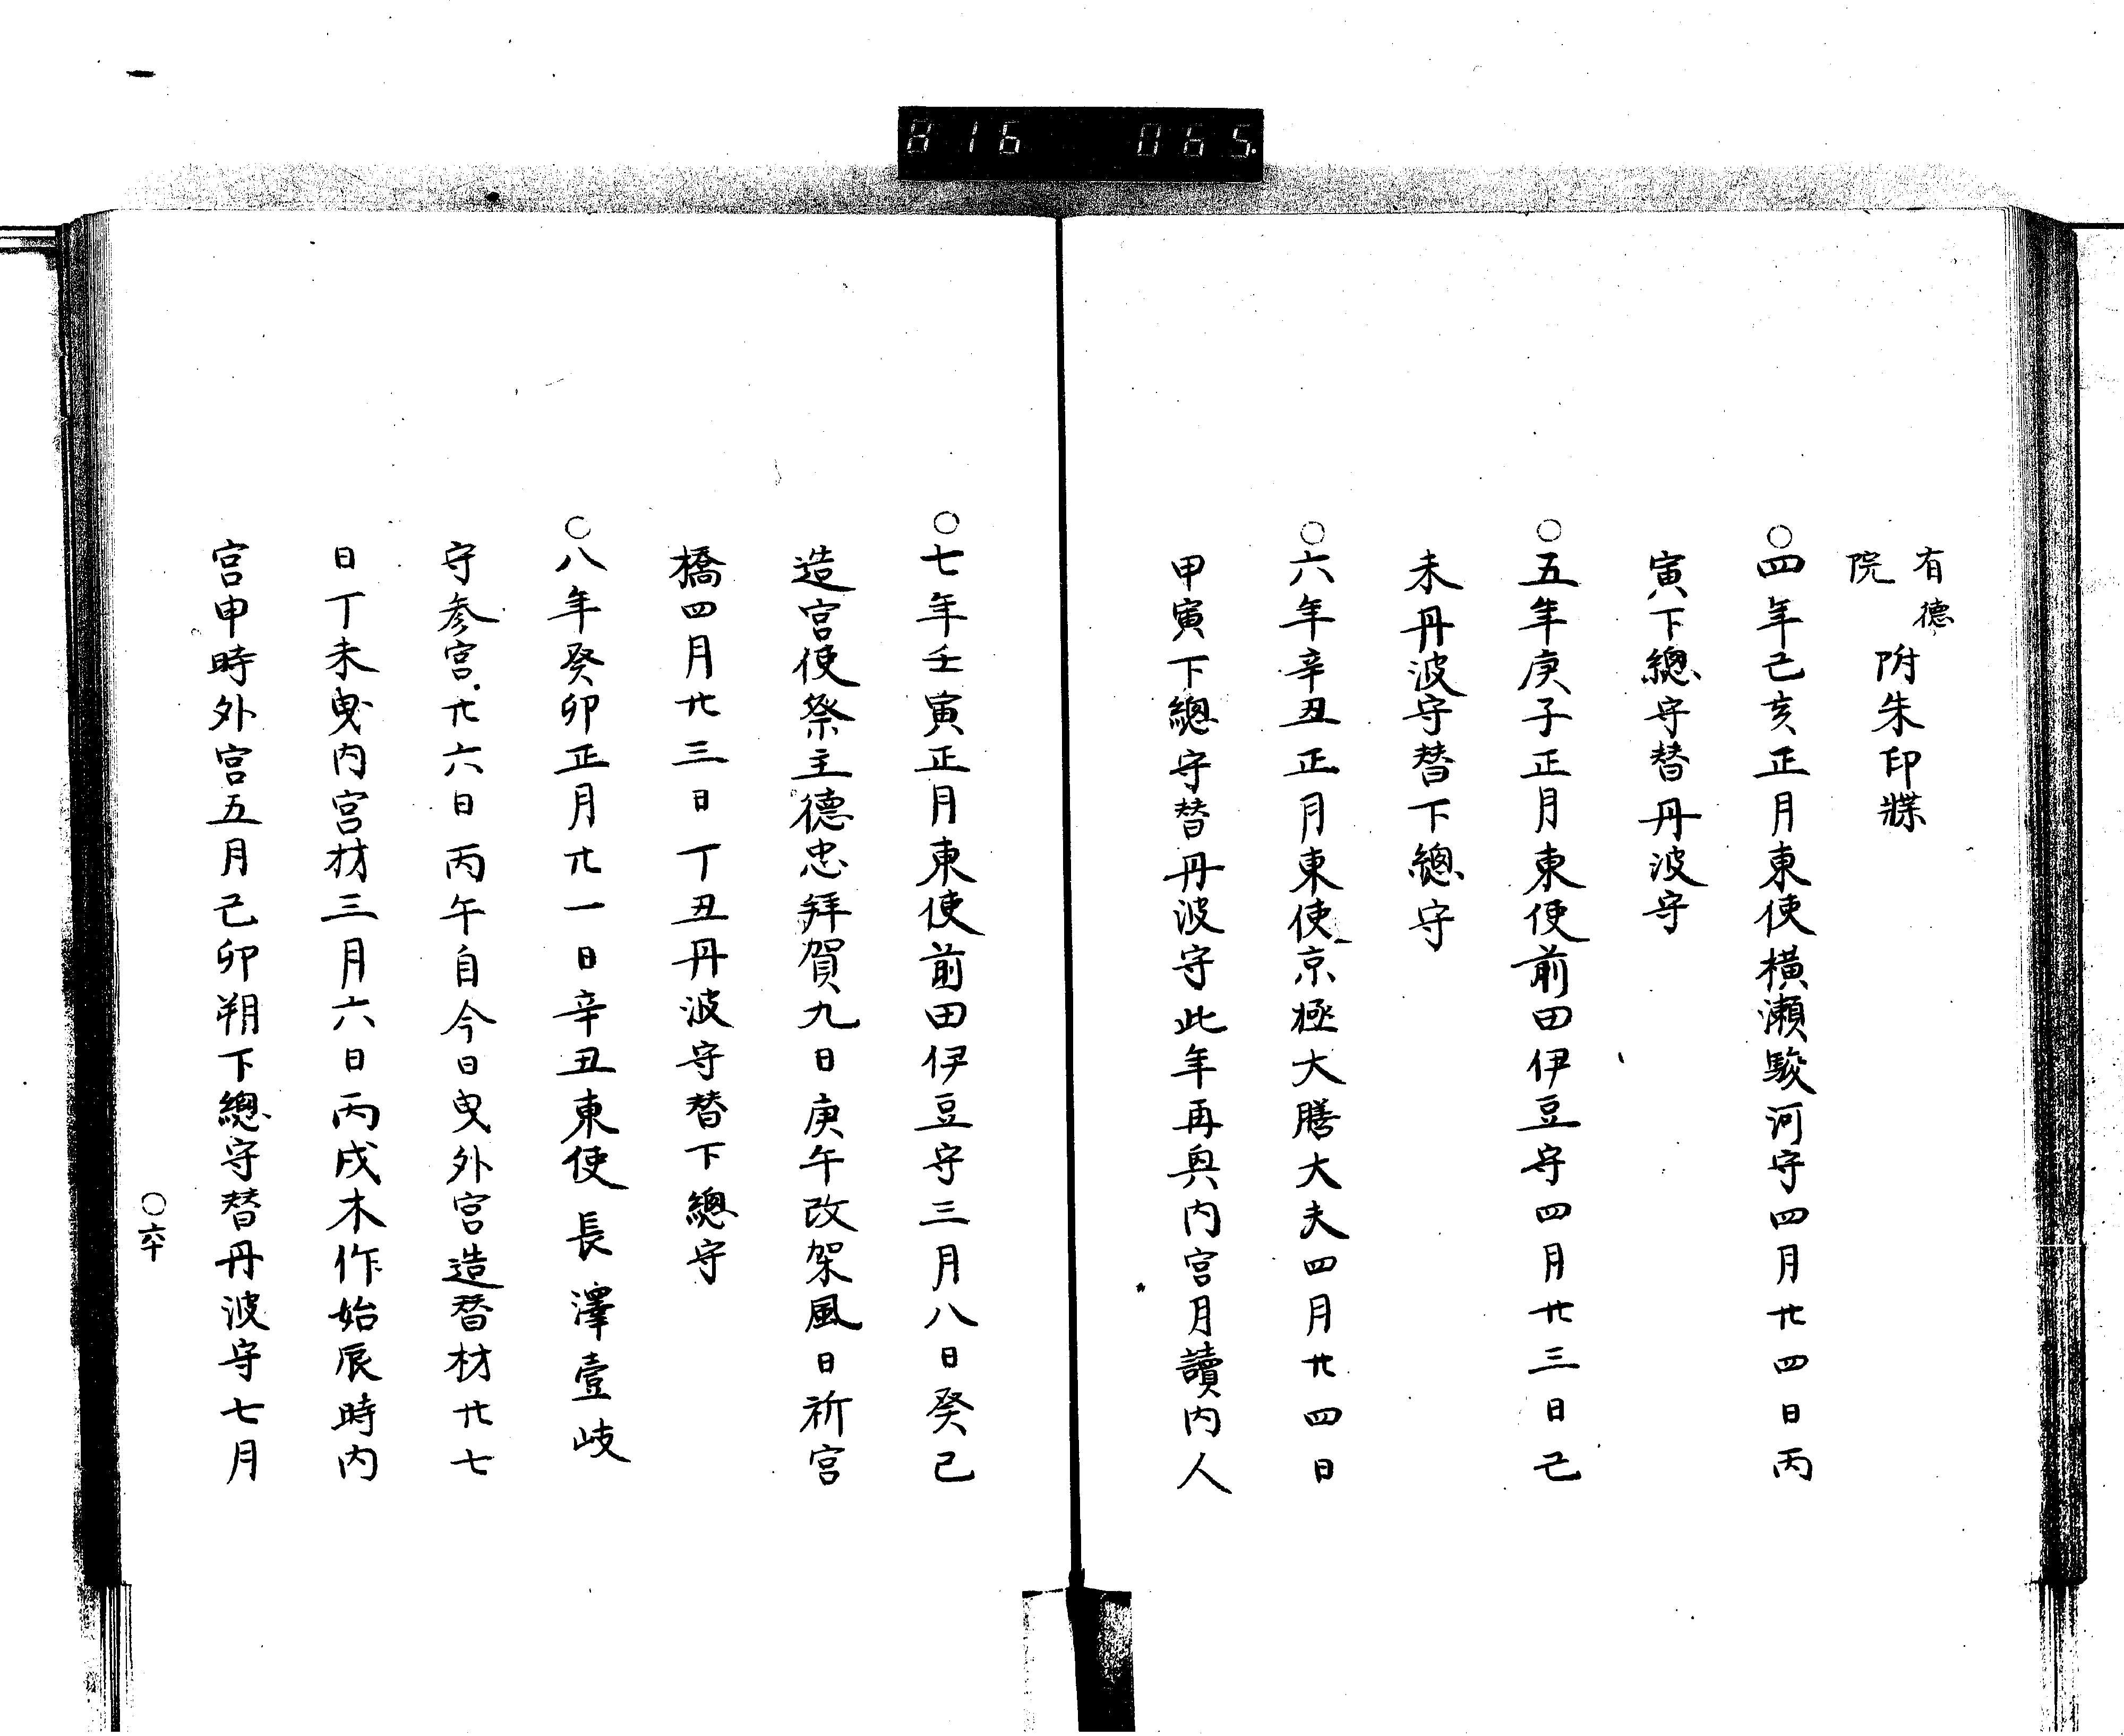 816 065.
有德
院
附朱印牒
○四年己亥正月東使橫瀨駿河守四月廿四日丙
寅下總守替丹波守
○五年庚子正月東使前田伊豆守四月廿三日己
未丹波守替下總守
○六年辛丑正月東使京極大膳大夫四月廿四日
甲寅下總守替丹波守此年再興內宮月讀內人
○七年壬寅正月東使前田伊豆守三月八日癸巳
造宮使祭主德忠拜賀九日庚午改架風日祈宮
橋四月廿三日丁丑丹波守替下總守
○八年癸卯正月廿一日辛丑東使長澤壹岐
守参宮廿六日丙午自今日曳外宮造替材廿七
日丁未曳内宮材三月六日丙戌木作始辰時内
宮申時外宮五月己卯朔下總守替丹波守七月
○六十